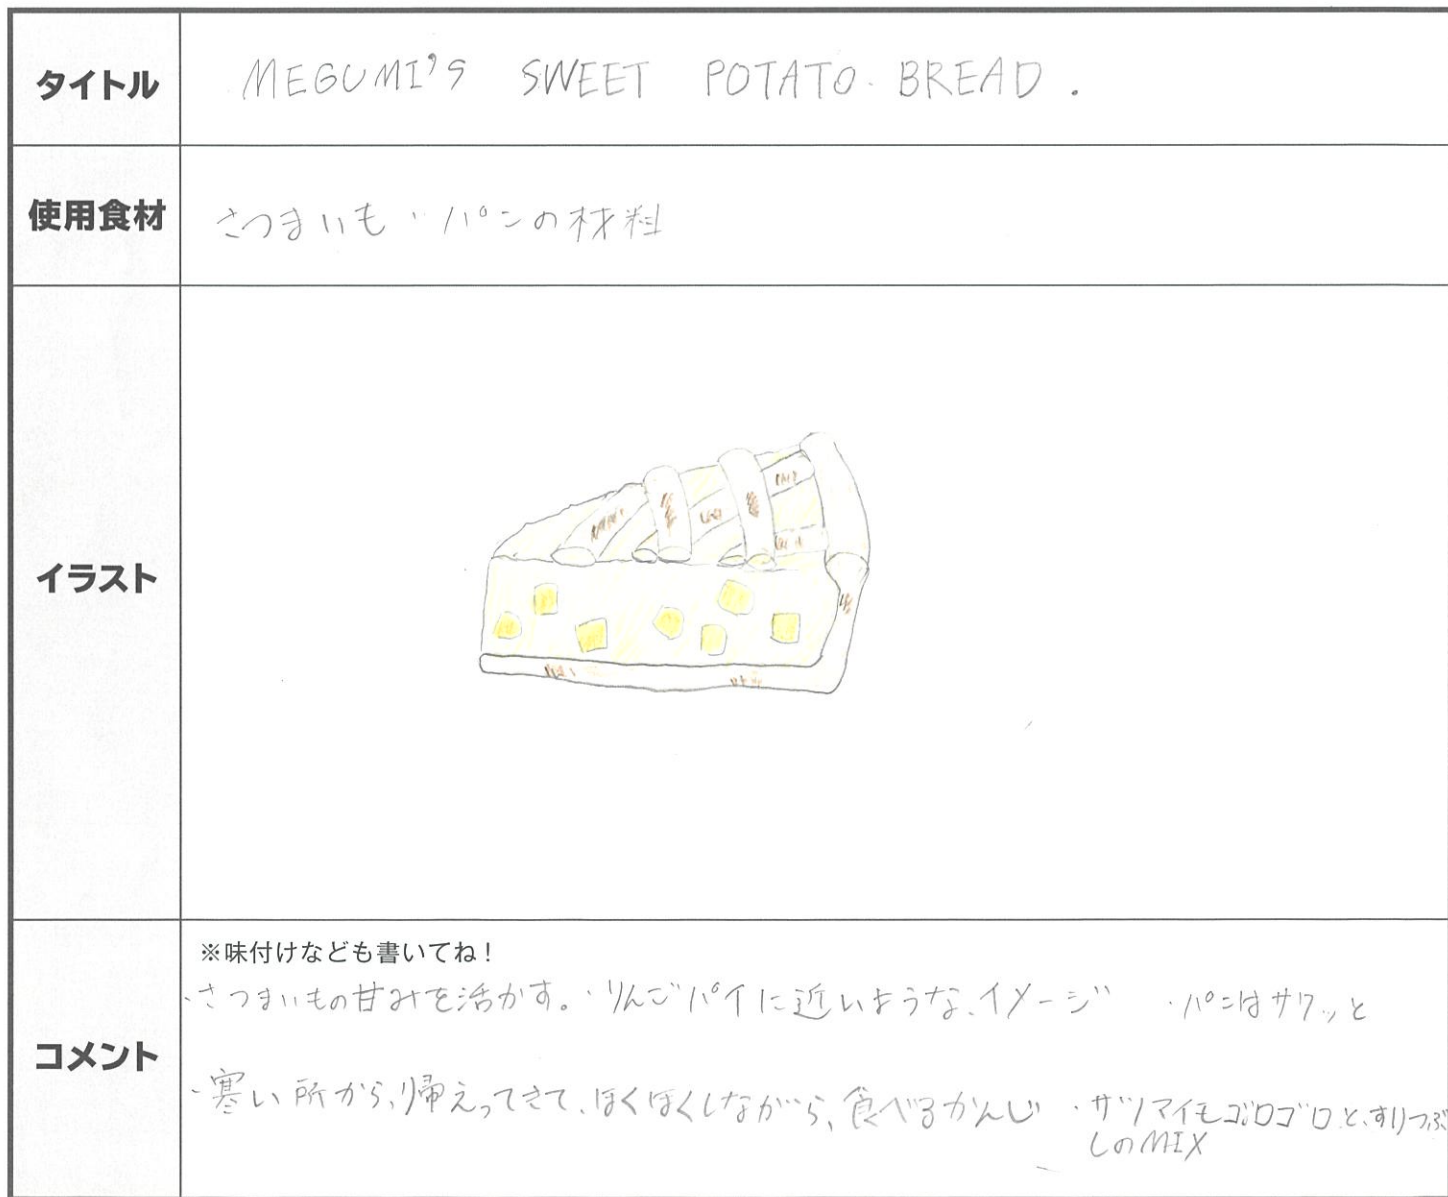 タイトル
MEGUMI'S SWEET POTATO BREAD.
使用食材
さつまいも・パンの材料
イラスト
コメント
※味付けなども書いてね！
・さつまいもの甘みを活かす。・りんごパイに近いような、イメージ ・パンはサクッと
・寒い所から、帰えってきて、ほくほくしながら、食べるかんじ ・サツマイモゴロゴロと、すりつぶ
しのMIX